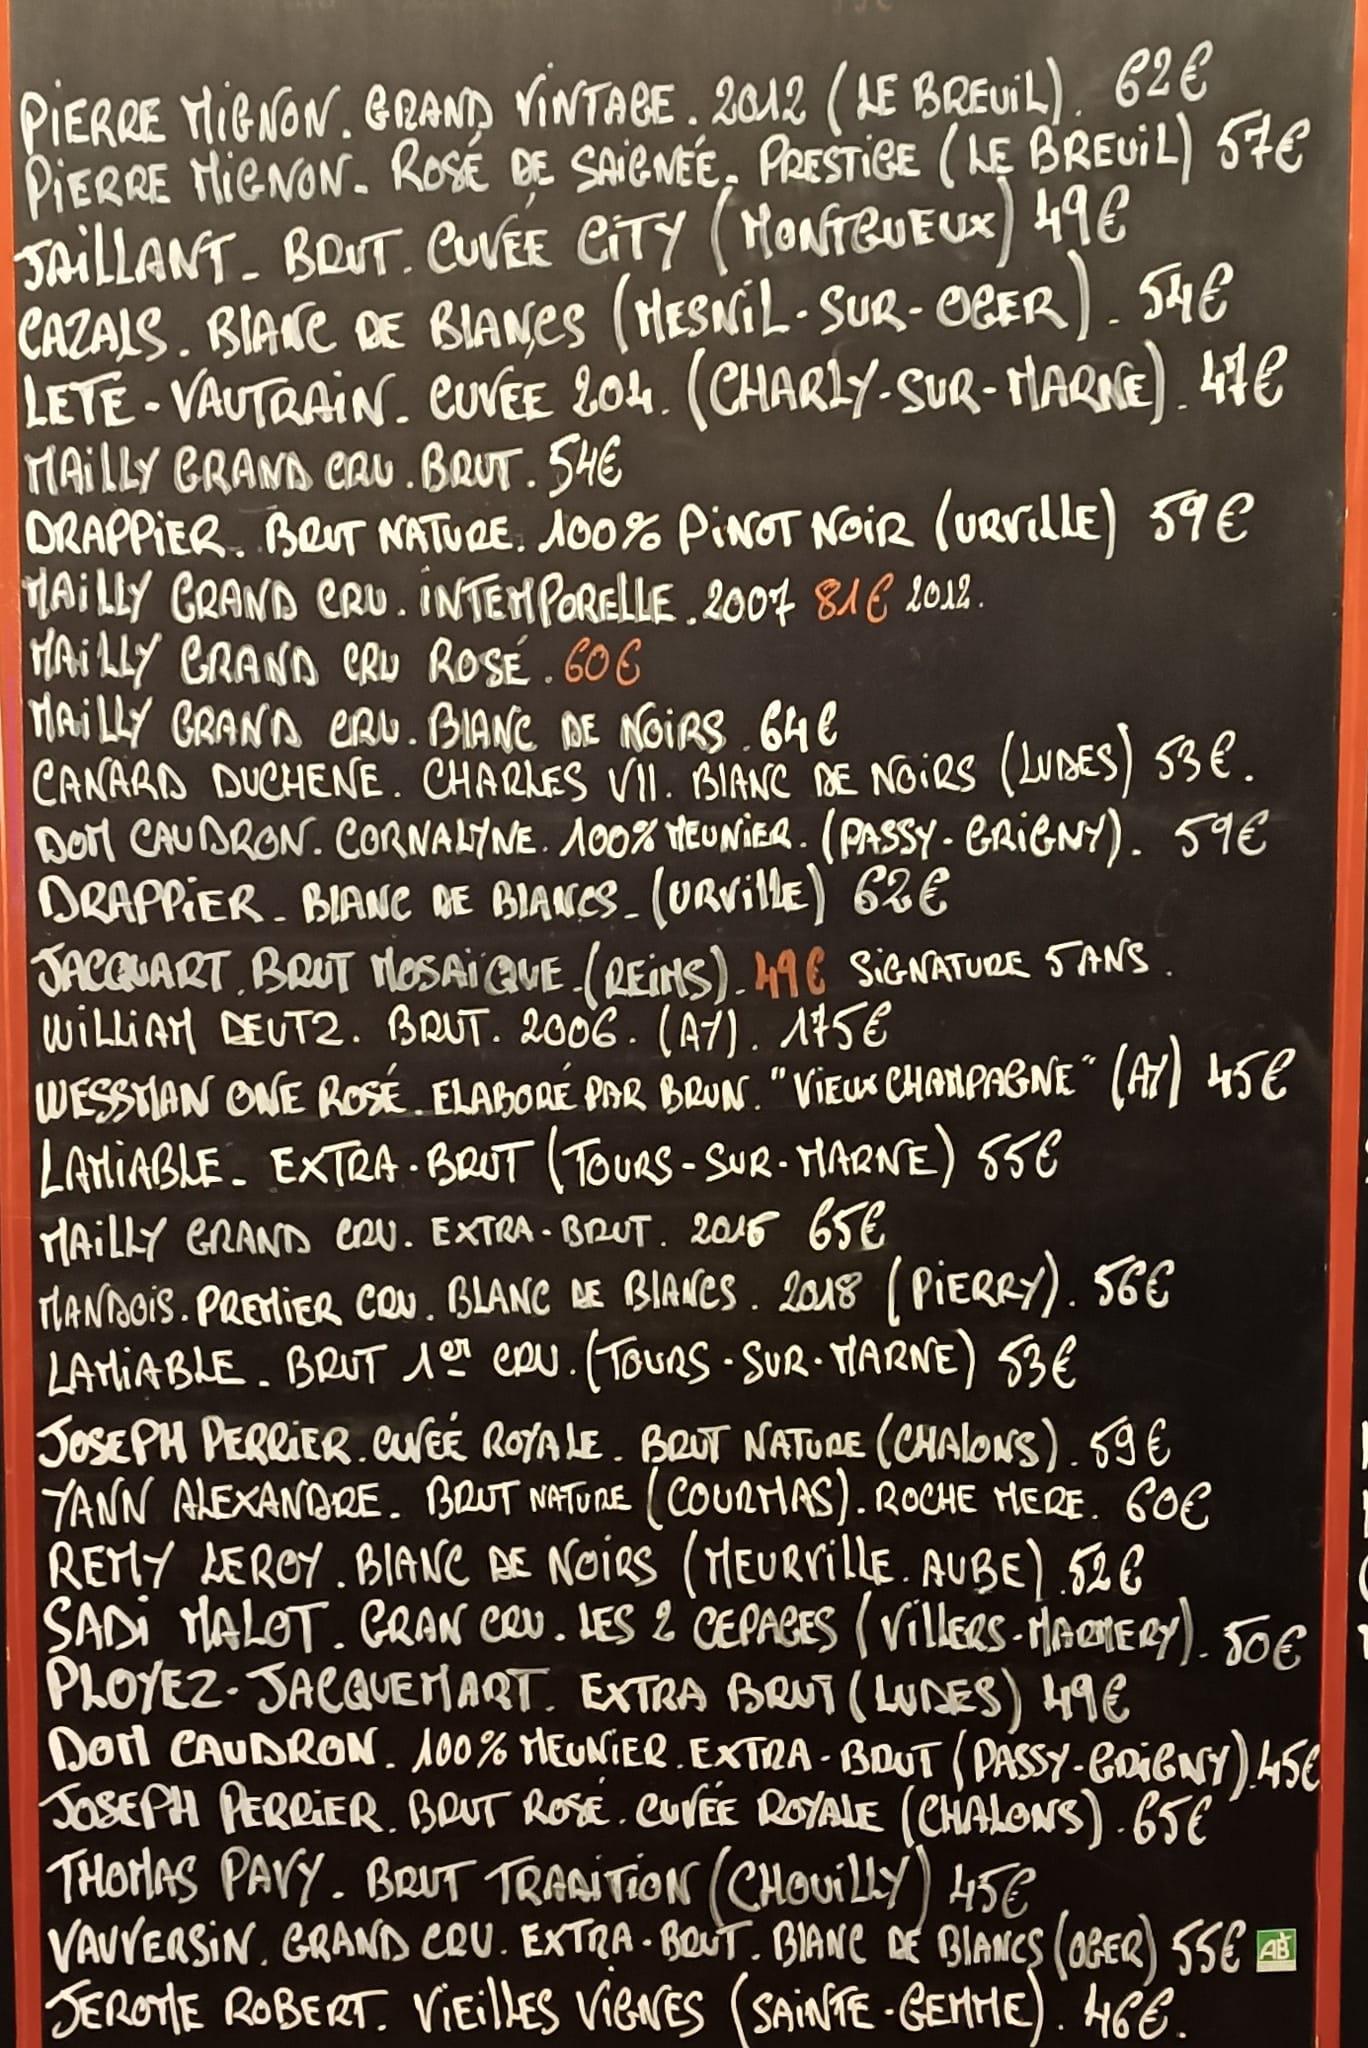 PIERRE MIGNON. GRAND VINTAGE. 2012 (LE BREUIL). 62€
PIERRE MIGNON - ROSÉ DE SAIGNÉE. PRESTIGE (LE BREUIL) 57€
JAILLANT - BRUT. CUVÉE CITY (MONTGUEUX) 49€
CAZALS. BLANC DE BLANCS (MESNIL-SUR-OGER). 54€
LETÉ - VAUTRAIN. CUVÉE 204. (CHARLY-SUR-MARNE). 47€
MAILLY GRAND CRU. BRUT. 54€
DRAPPIER. BRUT NATURE. 100% PINOT NOIR (URVILLE) 59€
MAILLY GRAND CRU. INTEMPORELLE. 2007 81€ 2012.
MAILLY GRAND CRU ROSÉ. 60€
MAILLY GRAND CRU. BLANC DE NOIRS. 64€
CANARD DUCHENE. CHARLES VII. BLANC DE NOIRS (LUDES) 53€.
DOM CAUDRON. CORNALYNE. 100% MEUNIER. (PASSY-GRIGNY). 59€
DRAPPIER - BLANC DE BLANCS - (URVILLE) 62€
JACQUART. BRUT MOSAÏQUE - (REIMS). 49€ SIGNATURE 5 ANS.
WILLIAM DEUTZ. BRUT. 2006. (AY). 175€
WESSMAN ONE ROSÉ. ELABORÉ PAR BRUN. "VIEUX CHAMPAGNE" (AY) 45€
LAMIABLE - EXTRA-BRUT (TOURS-SUR-MARNE) 55€
MAILLY GRAND CRU. EXTRA-BRUT. 2016 65€
MANDOIS. PREMIER CRU. BLANC DE BLANCS. 2018 (PIERRY). 56€
LAMIABLE - BRUT 1er CRU. (TOURS-SUR-MARNE) 53€
JOSEPH PERRIER. CUVÉE ROYALE. BRUT NATURE (CHALONS). 59€
YANN ALEXANDRE. BRUT NATURE (COURMAS). ROCHE MERE. 60€
REMY LEROY. BLANC DE NOIRS (MEURVILLE. AUBE). 52€
SADI MALOT. GRAN CRU. LES 2 CEPAGES (VILLERS-MARMERY). 50€
PLOYEZ-JACQUEMART. EXTRA BRUT (LUDES) 49€
DOM CAUDRON. 100% MEUNIER. EXTRA-BRUT (PASSY-GRIGNY). 45€
JOSEPH PERRIER. BRUT ROSÉ. CUVÉE ROYALE (CHALONS). 65€
THOMAS PAVY. BRUT TRADITION (CHOUILLY) 45€
VAUVERSIN. GRAND CRU. EXTRA-BRUT. BLANC DE BLANCS (OGER) 55€ AB
JEROME ROBERT. VIEILLES VIGNES (SAINTE-GEMME). 46€.